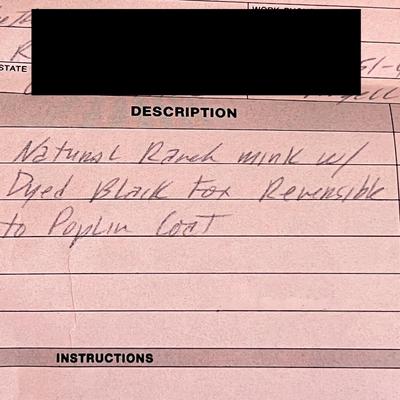 STATE
DESCRIPTION
Natural Ranch mink w/
Dyed Black Fox Reversible
to Poplin Coat
INSTRUCTIONS